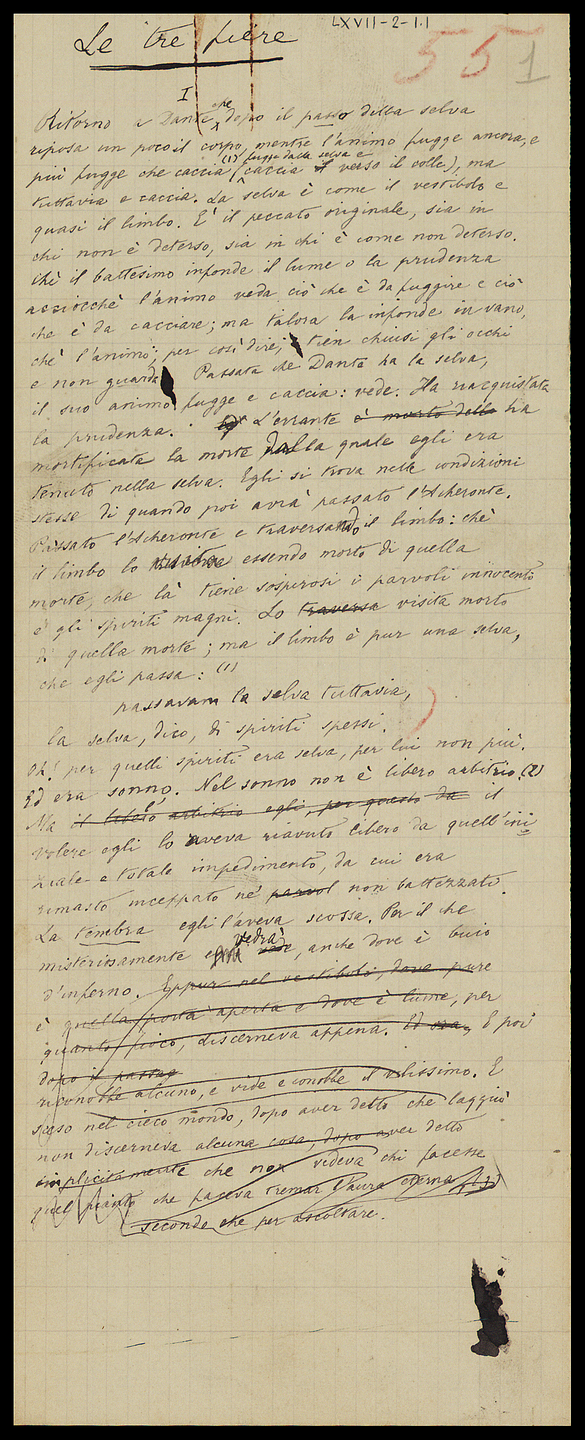 LXVII-2-1.1
Le tre fiere
55 1
I
Ritorno a Dante che dopo il passo della selva
riposa un poco il corpo, mentre l'animo fugge ancora, e
(1) fugge dalla selva e
più fugge che caccia (caccia verso il colle), ma
tuttavia e caccia. La selva è come il vestibolo e
quasi il limbo. È il peccato originale, sia in
chi non è deterso, sia in chi è come non deterso.
Chè il battesimo infonde il lume o la prudenza
acciocchè l'animo veda ciò che è da fuggire e ciò
che è da cacciare; ma talora la infonde in vano,
chè l'animo, per così dire, tien chiusi gli occhi
e non guarda. Passata che Dante ha la selva,
il suo animo fugge e caccia: vede. Ha riacquistata
la prudenza. L'errante è morto della ha
mortificata la morte dalla quale egli era
tenuto nella selva. Egli si trova nelle condizioni
stesse di quando poi avrà passato l'Acheronte.
Passato l'Acheronte e traversando il limbo: chè
il limbo lo traversa essendo morto di quella
morte, che là tiene sospirosi i parvoli innocenti
e gli spiriti magni. Lo traversa visita morto
di quella morte; ma il limbo è pur una selva,
che egli passa: (1)
passavam la selva tuttavia,
la selva, dico, di spiriti spessi.
Oh! per quelli spiriti era selva, per lui non più.
Ed era sonno. Nel sonno non è libero arbitrio. (2)
Ma il libero arbitrio egli, per questo da il
volere egli lo aveva riavuto libero da quell'ini
ziale e totale impedimento, da cui era
rimasto inceppato ne' parvol non battezzati.
La tenebra egli l'aveva scossa. Per il che
misteriosamente vedrà vede, anche dove è buio
d'inferno. Eppur nel vestibolo, dove pure
è quella porta aperta e dove è lume, per
quanto fioco, discerneva appena. Ed era, E poi
dopo il passag
riconobbe alcuno, e vide e conobbe il vilissimo. E
sceso nel cieco mondo, dopo aver detto che laggiù
non discerneva alcuna cosa, dopo aver detto
implicitamente che non vedeva chi facesse
quel pianto che faceva tremar l'aura eterna
secondo che per ascoltare.